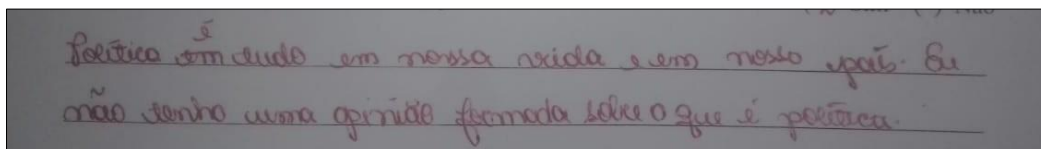 Política é tudo em nossa vida e em nosso país. Eu
não tenho uma opinião formada sobre o que é política.